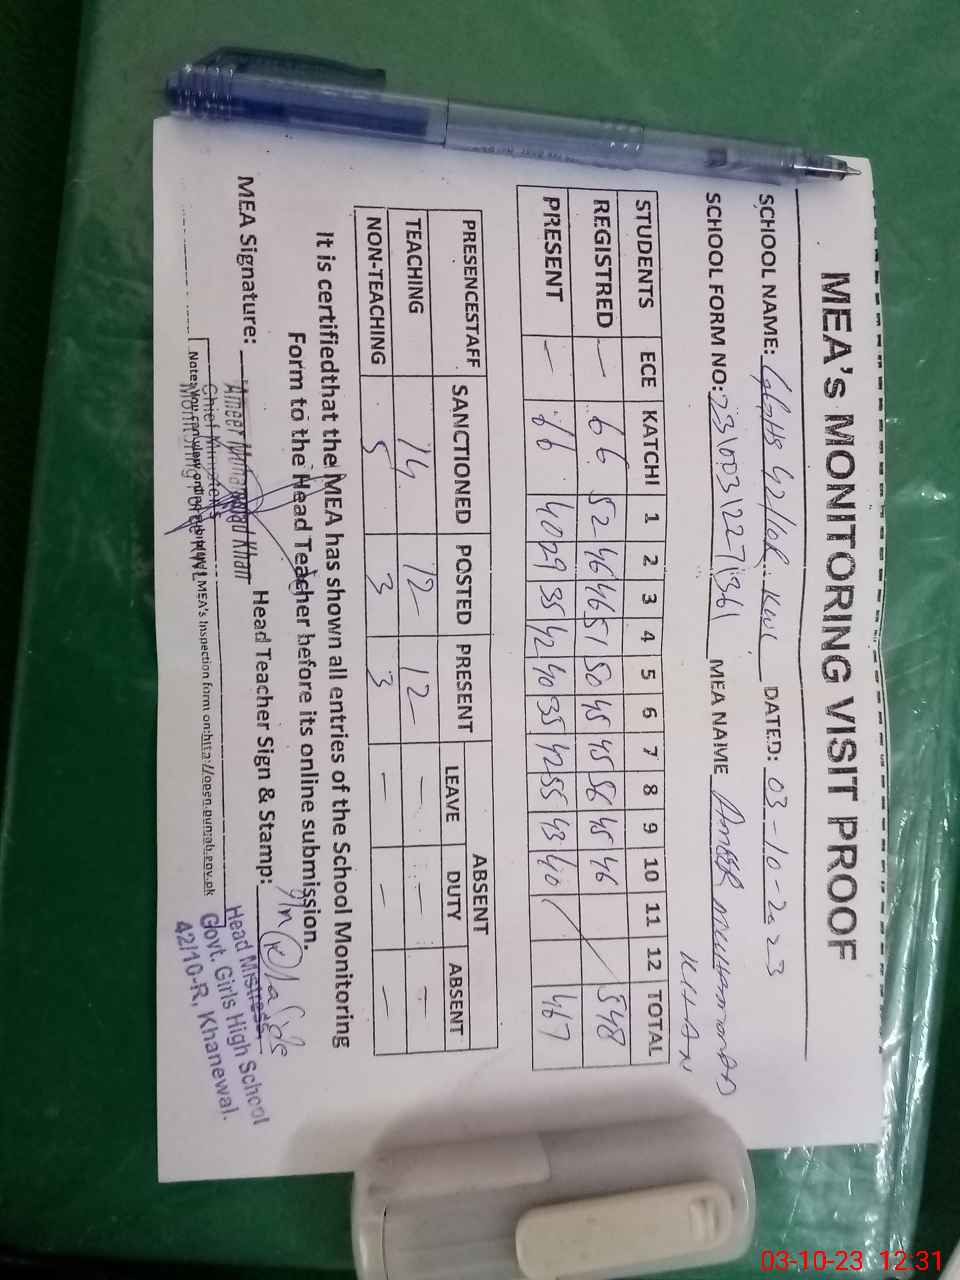 MEA's MONITORING VISIT PROOF
SCHOOL NAME: GGHS 42/10R. KWL DATED: 03-10-2023
SCHOOL FORM NO: 23\003\227\361 MEA NAME AMEER MUHAMMAD
KHAN
STUDENTS ECE KATCHI 1 2 3 4 5 6 7 8 9 10 11 12 TOTAL
REGISTRED — 66 52 46 46 51 50 45 45 56 45 46 548
PRESENT — 66 40 29 35 42 40 35 42 55 43 40 467
PRESENCESTAFF SANCTIONED POSTED PRESENT ABSENT
LEAVE DUTY ABSENT
TEACHING 14 12 12 — — —
NON-TEACHING 5 3 3 — — —
It is certifiedthat the MEA has shown all entries of the School Monitoring
Form to the Head Teacher before its online submission.
MEA Signature: Head Teacher Sign & Stamp:
Ameer Muhammad Khan
Chief Minister's
Monitoring Force KWL
Note: You can view online submitted MEA's Inspection form on:http://open.punjab.gov.pk
Head Mistress
Govt. Girls High School
42/10-R, Khanewal.
03-10-23 12:31